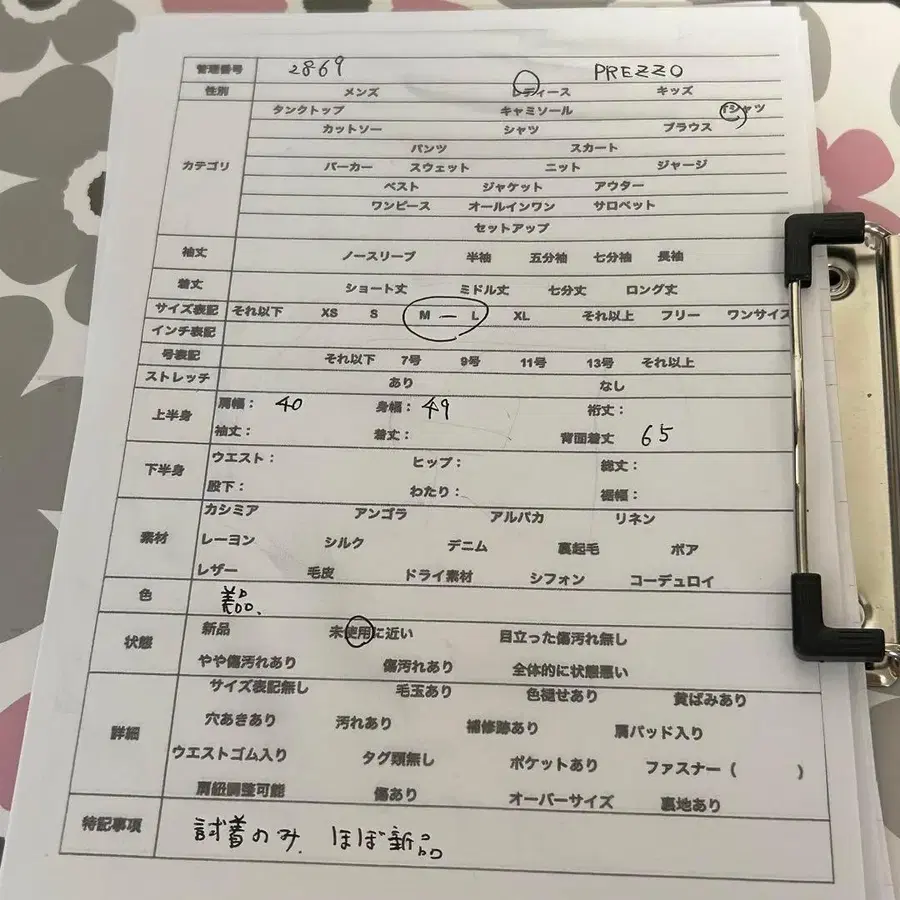 管理番号 2869 PREZZO
性別 メンズ レディース キッズ
カテゴリ
タンクトップ キャミソール Tシャツ
カットソー シャツ ブラウス
パンツ スカート
パーカー スウェット ニット ジャージ
ベスト ジャケット アウター
ワンピース オールインワン サロペット
セットアップ
袖丈 ノースリーブ 半袖 五分袖 七分袖 長袖
着丈 ショート丈 ミドル丈 七分丈 ロング丈
サイズ表記 それ以下 XS S M — L XL それ以上 フリー ワンサイズ
インチ表記
号表記 それ以下 7号 9号 11号 13号 それ以上
ストレッチ あり なし
上半身
肩幅: 40 身幅: 49 裄丈:
袖丈: 着丈: 背面着丈 65
下半身
ウエスト: ヒップ: 総丈:
股下: わたり: 裾幅:
素材
カシミア アンゴラ アルパカ リネン
レーヨン シルク デニム 裏起毛 ボア
レザー 毛皮 ドライ素材 シフォン コーデュロイ
色
状態
新品 未使用に近い 目立った傷汚れ無し
やや傷汚れあり 傷汚れあり 全体的に状態悪い
詳細
サイズ表記無し 毛玉あり 色褪せあり 黄ばみあり
穴あきあり 汚れあり 補修跡あり 肩パッド入り
ウエストゴム入り タグ類無し ポケットあり ファスナー( )
肩紐調整可能 傷あり オーバーサイズ 裏地あり
特記事項 試着のみ、ほぼ新品